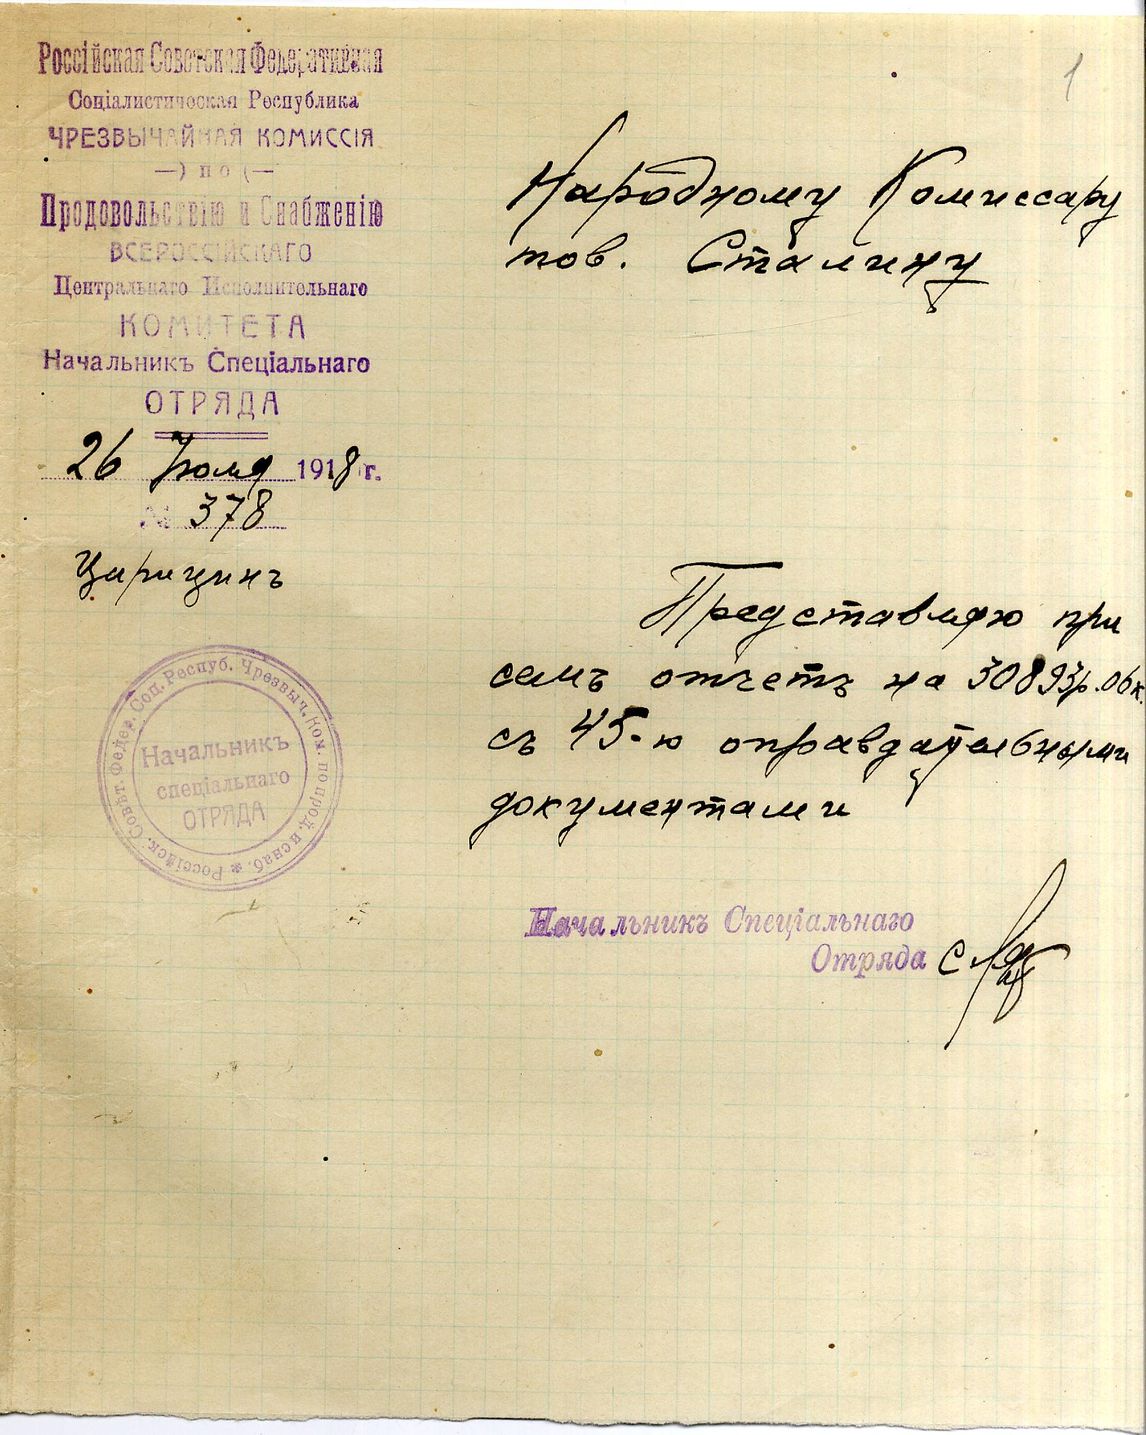 1
Россійская Советская Федеративная
Соціалистическая Республика
ЧРЕЗВЫЧАЙНАЯ КОМИССІЯ
—) по (—
Продовольствію и Снабженію
ВСЕРОССІЙСКАГО
Центральнаго Исполнительнаго
КОМИТЕТА
Начальникъ Спеціальнаго
ОТРЯДА
26 Июля 1918 г.
№ 378
Царицинъ
Народному Комиссару
тов. Сталину
Представляю при
семъ отчетъ на 30893р. 06к.
съ 45-ю оправдательными
документами
Россійск. Совѣт. Федер. Соц. Респуб. Чрезвыч. Ком. по прод. и снаб. *
Начальникъ
спеціальнаго
ОТРЯДА
Начальникъ Спеціальнаго
Отряда